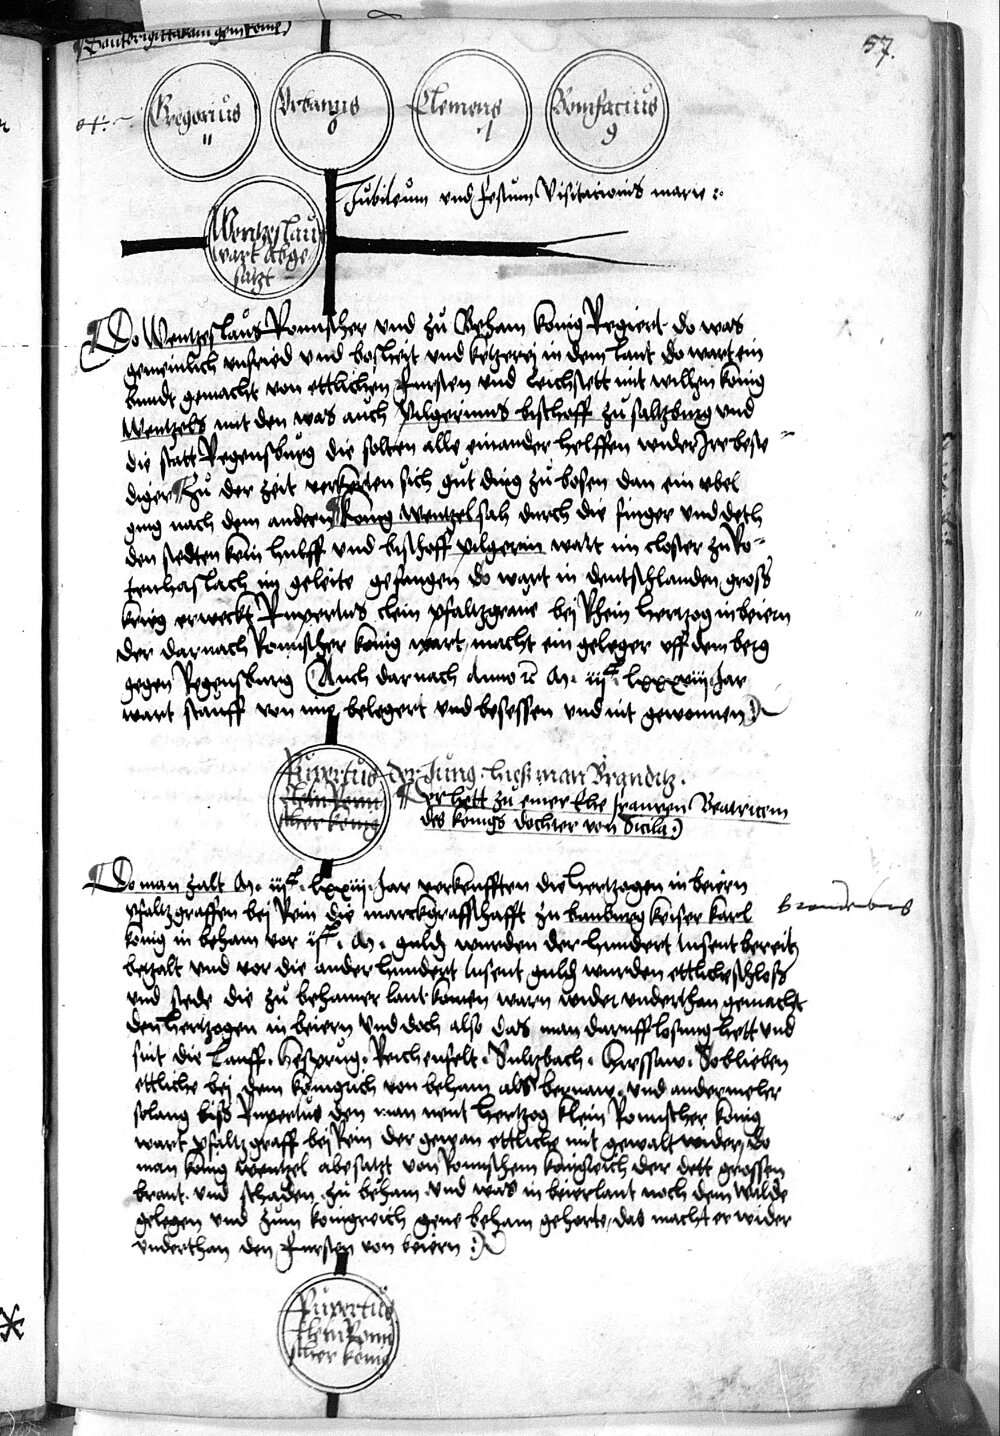 57.
Gregorius
11
Urbanus
6
Clemens
7
Bonifacius
9
Jubileum und festum Visitacionis marie :.
Wentzeslau
wart abge
satzt
Do Wentzeslaus Romischer und zu Beham konig Regiert do was
gemeinlich unfried und bosheit und ketzerej in dem lant do wart ein
bundt gemacht von ettlichen fursten und reichstett mit willen konig
Wentzels mit den was auch Pilgerinus bischoff zu saltzburg und
die statt Regensburg die solten alle einander helffen wider Ire beste
diger Zu der zeit verkerten sich gut ding zu bosen dan ein ubel
ging nach dem andern konig Wentzel sah durch die finger und deth
den stedten kein hulff und bischoff pilgerin wart im closter zu Ro-
tenhaslach im geleite gefangen do wart in deutschlanden gross
krieg erweckt Rupertus clein pfaltzgrave bej Rhein hertzog in beiern
der darnach Romischer konig wart macht ein geleger uff dem berg
gegen Regensburg Auch darnach Anno M. iijc. lxxxviij Jar
wart stauff von im belegert und besessen und nit gewonnen
Rupertus
clein Romi
scher konig
der Jung hiess man
Der hett zu einer Ehe frauwen Beatricem
des konigs dochter von Sicila
Do man zalt M. iijc. lxxiij Jar verkaufften die hertzogen in beiern
pfaltzgraffen bej Rein die marckgraffschafft zu banburg keiser karl
konig in beham vor ijc. M. guld wurden der hundert tusent bereit
betzalt und vor die ander hundert tusent guld wurden ettliche schloss
und stede die zu behamer lant komen warn wider underthan gemacht
den hertzogen in beiern und doch also das man daruff losung hett und
sint die Lauff. Hersprug. Reichenfelt. Sultzbach. Hirssaw. So blieben
ettliche bej dem konigrich von beham als bernaw. und ander meher
solang biss Rupertus den man nent hertzog klein Romischer konig
wart pfaltzgraff bej Rein der gewan ettliche mit gewalt wider do
man konig wentzel abesatzt von Romischem konigreich der dett grossen
brant. und schaden. zu beham. und was in beierlant noch dem walde
gelegen und zum konigreich gene beham gehorte das macht er wider
underthan den fursten von beiern
Rupertus
clein Romi
scher konig